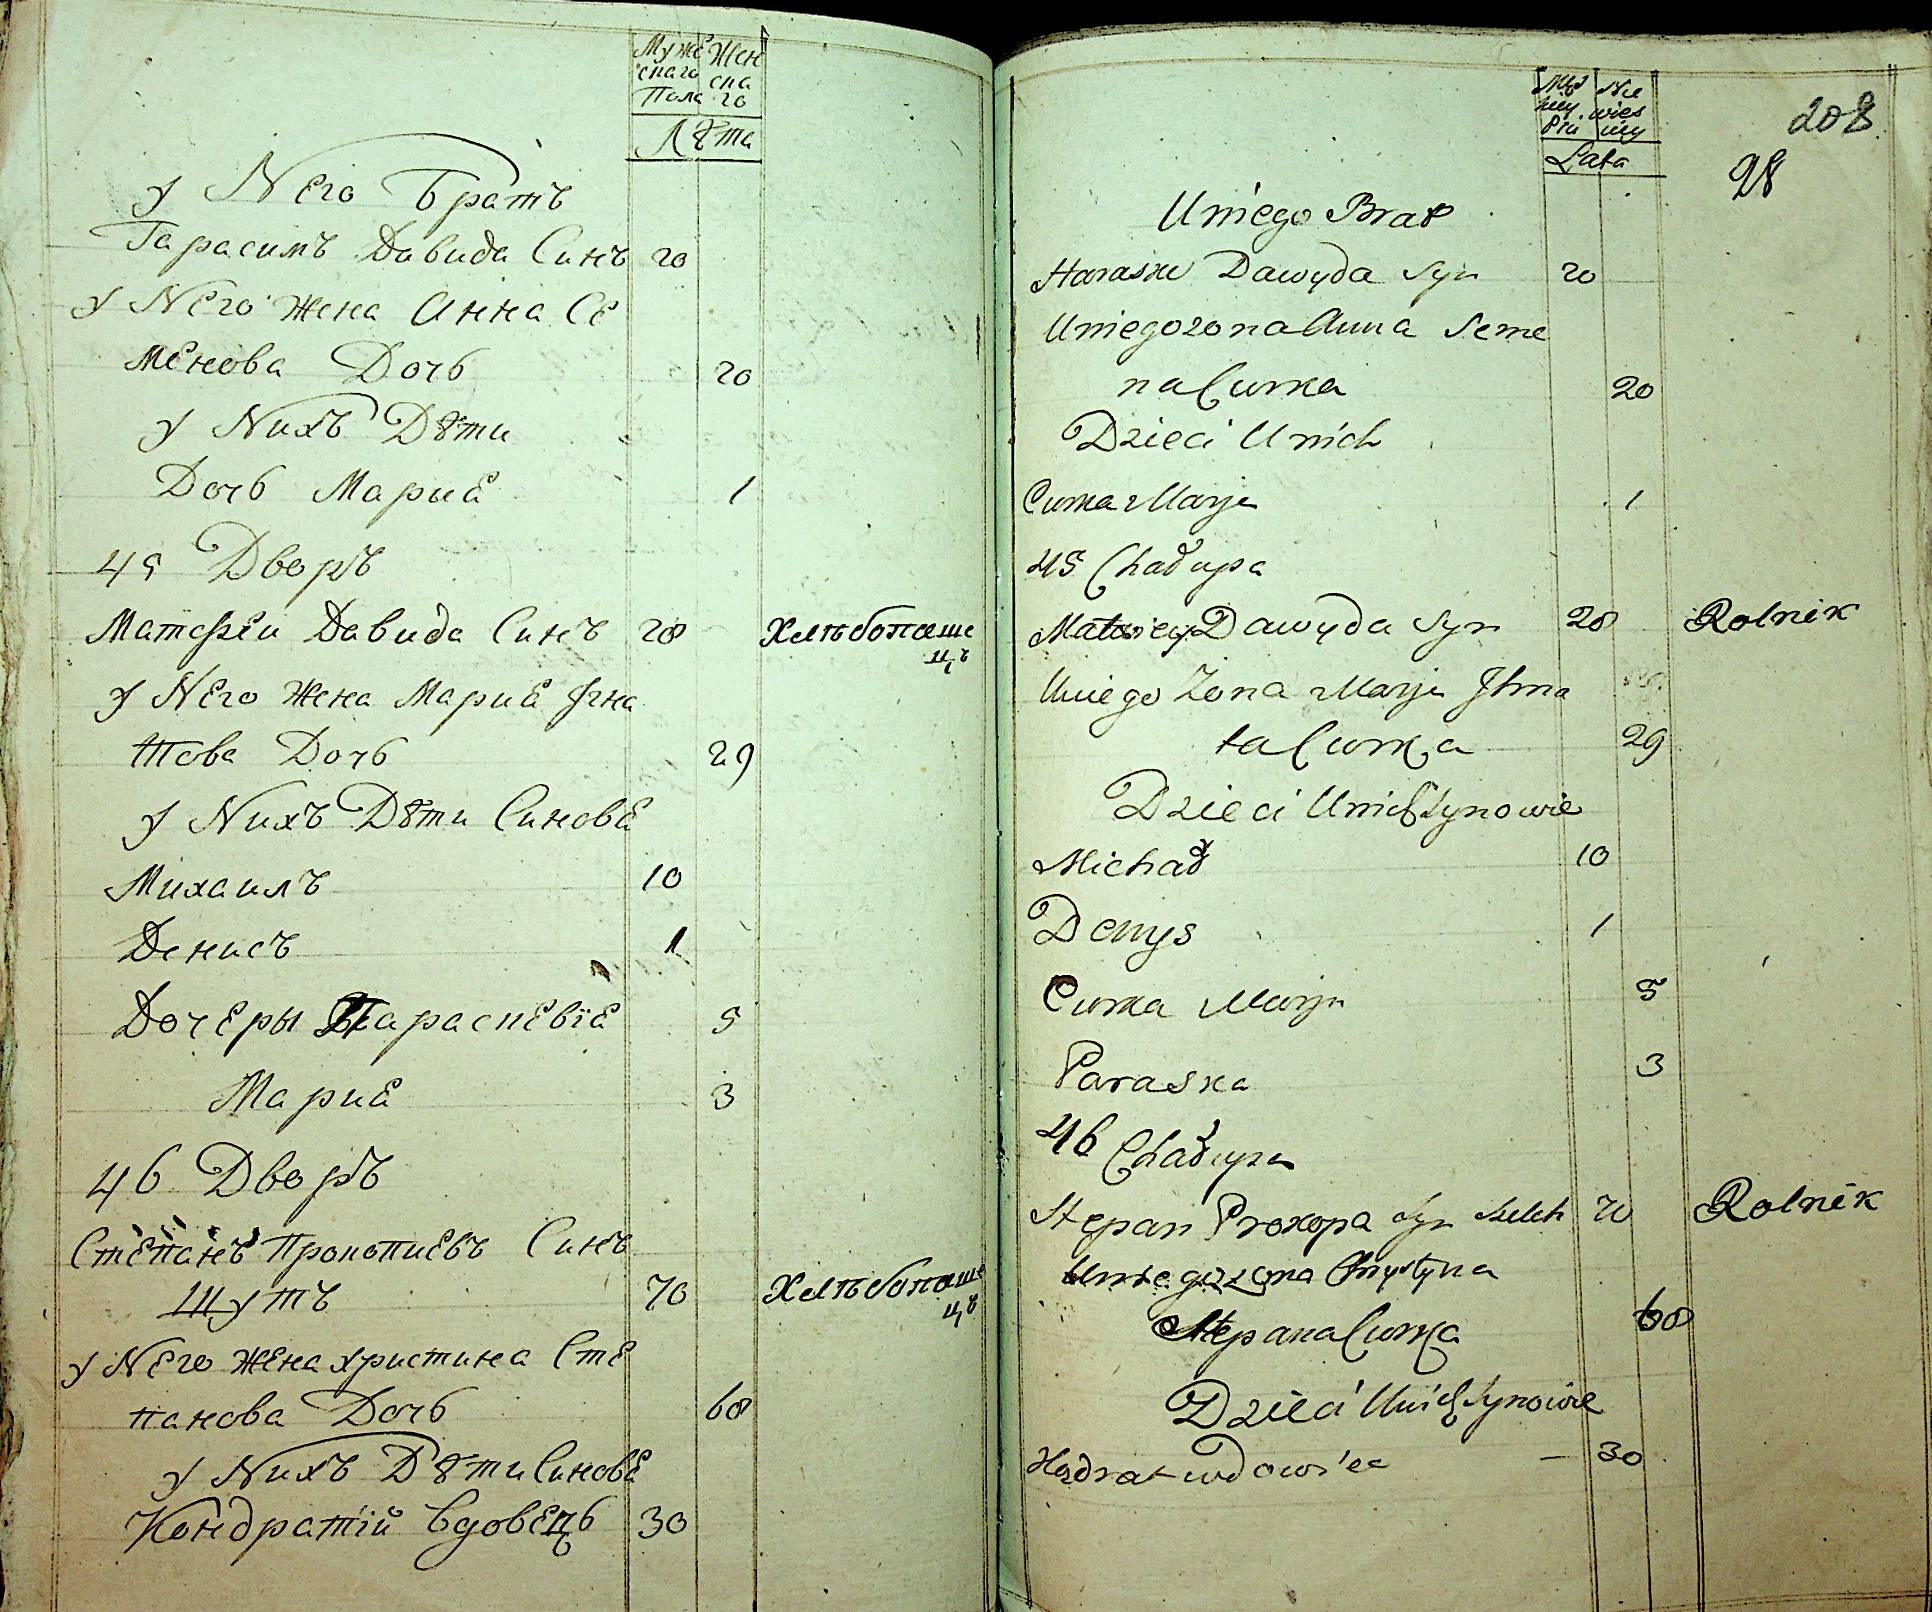 Муже Жен
скаго ска
Пола го
Лѣта
У Него Братъ
Гарасимъ Давида Синъ 20
У Него Жена Анна Се
менова Дочь 20
У Нихъ Дѣти
Дочь Мариѣ 1
45 Дворъ
Матфеи Давида Синъ 28 Хлѣбопаше
цъ
У Него Жена Мариѣ Игна
това Дочь 29
У Нихъ Дѣти Синовѣ
Михаилъ 10
Денисъ 1
Дочеры Параскевіѣ 5
Мариѣ 3
46 Дворъ
Степанъ Прокопиевъ Синъ
Шутъ 70 Хлѣбопаше
цъ
У Него Жена христина Сте
панова Дочь 60
У Нихъ Дѣти Синовѣ
Кондратій вдовецъ 30
208
98
Lata
Uniego Brat
Harasim Dawyda Syn 20
Uniego zona Anna Seme
na Curka 20
Dzieci Unich
Curka Marja 1
45 Chałupa
Matwiey Dawyda Syn 28 Rolnik
Uniego Zona Marja Ihna
ta Curka 29
Dzieci Unich Synowie
Michał 10
Denys 1
Curka Marja 5
Paraska 3
46 Chałupa
Stepan Prokopa Syn 70 Rolnik
Uniego zona Chrystyna
Stepana Curka 60
Dzieci Unich Synowie
Kądrat wdowiec 30